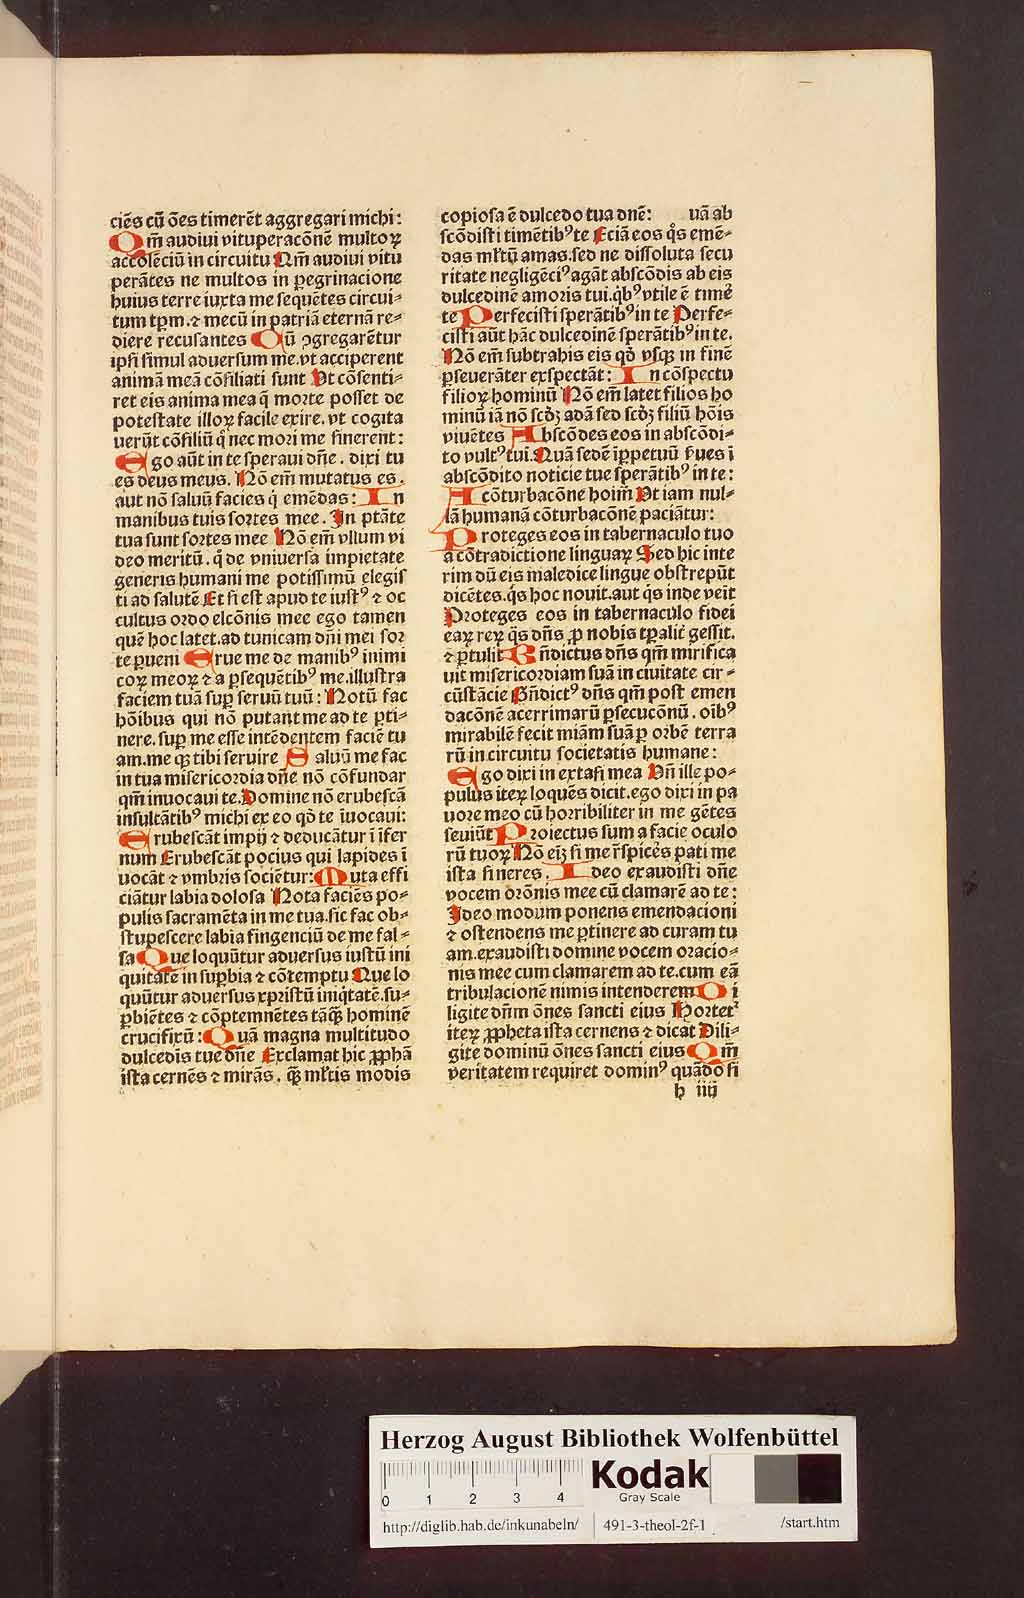 ciēs cū ōes timerēt aggregari michi:
Qm̄ audiui vituperacōnē multoꝝ
accolēciū in circuitu Qm̄ audiui vitu
perātes ne multos in ꝑegrinacione
huius terre iuxta me sequētes circui-
tum tp̄m. ⁊ mecū in patriā eternā re-
diere recusantes Cū ꝯgregarētur
ipsi simul aduersum me.vt acciperent
animā meā cōsiliati sunt Ut cōsenti-
ret eis anima mea q̄ morte posset de
potestate illoꝝ facile exire. vt cogita
uerūt cōsiliū qͦ nec mori me sinerent:
Ego aūt in te speraui dn̄e . dixi tu
es deus meus. Nō em̄ mutatus es .
aut nō saluū facies qͥ emēdas: In
manibus tuis sortes mee. In ptāte
tua sunt sortes mee Nō em̄ vllum vi
deo meritū . qͦ de vniuersa impietate
generis humani me potissimū elegis
ti ad salutē Et si est apud te iustꝰ ⁊ oc
cultus ordo elcōnis mee ego tamen
quē hoc latet.ad tunicam dn̄i mei sor
te ꝑueni Erue me de manibꝰ inimi
coꝝ meoꝝ ⁊ a ꝑsequētibꝰ me.illustra
faciem tuā suꝑ seruū tuū: Notū fac
hōibus qui nō putant me ad te ꝑti-
nere. suꝑ me esse intēdentem faciē tu
am.me qꝫ tibi seruire Saluū me fac
in tua misericordia dn̄e nō cōfundar
qm̄ inuocaui te. Domine nō erubescā
insultātibꝰ michi ex eo qd̄ te īuocaui:
Erubescāt impij ⁊ deducātur ī īfer
num Erubescāt pocius qui lapides ī
uocāt ⁊ vmbris sociētur: Muta effi
ciātur labia dolosa Nota faciēs po-
pulis sacramēta in me tua.sic fac ob-
stupescere labia fingenciū de me fal-
sa Que loquūtur aduersus iustū ini
quitatē in suꝑbia ⁊ cōtemptu Que lo
quūtur aduersus xpristū iniqͥtatē.su-
ꝑbiētes ⁊ cōptemnētes tāqꝫ hominē
crucifixū: Quā magna multitudo
dulcedīs tue dn̄e Exclamat hic ꝓphā
ista cernēs ⁊ mirās. qꝫ ml̄tis modis
copiosa ē dulcedo tua dnē: uā ab
scōdisti timētibꝰ te Eciā eos qͦs emē-
das ml̄tū amas.sed ne dissoluta secu
ritate negligēciꝰ agāt abscōdis ab eis
dulcedinē amoris tui.qͥbꝰ vtile ē timē
te Perfecisti sperātibꝰ in te Perfe-
cisti aūt hāc dulcedinē sperātibꝰ in te.
Nō em̄ subtrahis eis qd̄ vsqꝫ in finē
ꝑseuerāter exspectāt: In cōspectu
filioꝝ hominū Nō em̄ latet filios ho
minū iā nō scd̄ꝫ adā sed scd̄ꝫ filiū hōis
viuētes Abscōdes eos in abscōdi-
to vultꝰ tui. Quā sedē īꝑpetuū ẜues ī
abscōdito noticie tue sperātibꝰ in te:
A cōturbacōne hoim̄ Ut iam nul-
lā humanā cōturbacōnē paciātur:
Proteges eos in tabernaculo tuo
a cōtradictione linguaꝝ Sed hic inte
rim dū eis maledice lingue obstrepūt
dicētes.qͥs hoc nouit.aut qͥs inde veīt
Proteges eos in tabernaculo fidei
eaꝝ reꝝ qͣs dn̄s ꝓ nobis tp̄alit̄ gessit.
⁊ ꝑtulit Bn̄dictus dn̄s qm̄ mirifica
uit misericordiam suā in ciuitate cir-
cūstācie Bn̄dictꝰ dn̄s qm̄ post emen
dacōnē acerrimarū ꝑsecucōnū . oībꝰ
mirabilē fecit miām suā ꝑ orbē terra
rū in circuitu societatis humane:
Ego dixi in extasi mea Un̄ ille po-
pulus iteꝝ loquēs dicit.ego dixi in pa
uore meo cū horribiliter in me gētes
seuiūt Proiectus sum a facie oculo
rū tuoꝝ Nō eīꝫ si me rͣspicēs pati me
ista sineres. Ideo exaudisti dn̄e
vocem orōnis mee cū clamarē ad te:
Ideo modum ponens emendacioni
⁊ ostendens me ꝑtinere ad curam tu
am.exaudisti domine vocem oracio-
nis mee cum clamarem ad te.cum eā
tribulacionē nimis intenderem Di
ligite dn̄m ōnes sancti eius Hortetͬ
iteꝝ ꝓpheta ista cernens ⁊ dicat Dili-
gite dominū ōnes sancti eius Qm̄
veritatem requiret dominꝰ quādo si
h iiij
Herzog August Bibliothek Wolfenbüttel
0 1 2 3 4
Kodak
Gray Scale
http://diglib.hab.de/inkunabeln/ 491-3-theol-2f-1 /start.htm